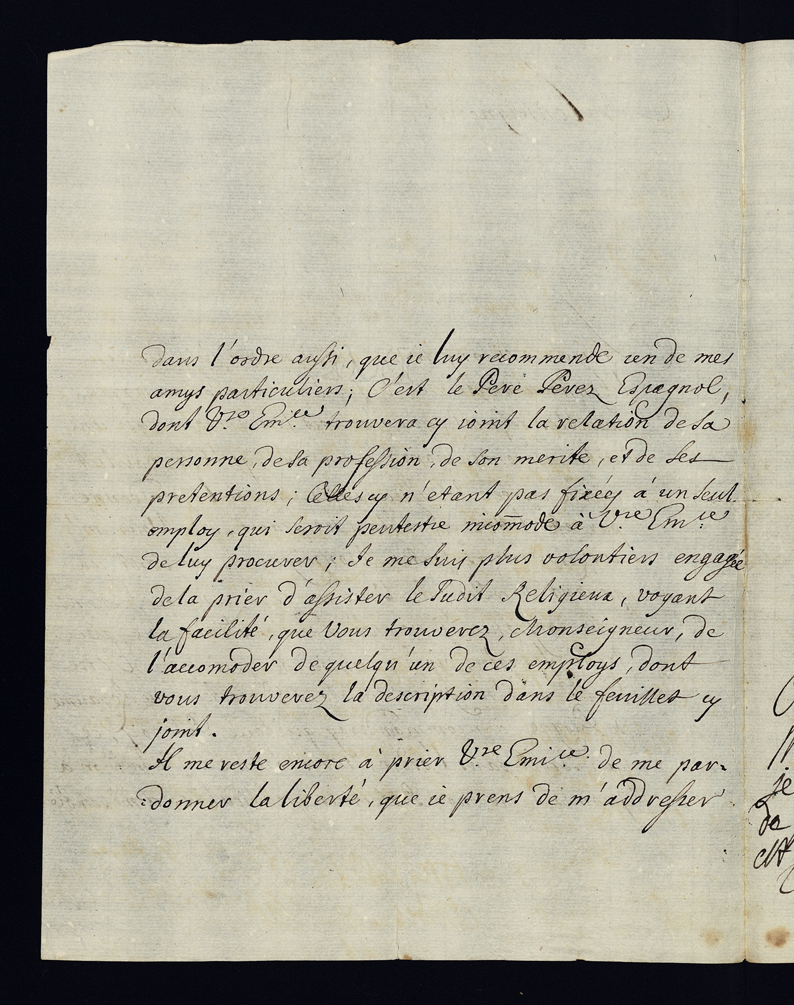 dans l'ordre aussi, que ie luy recommende un de mes
amys particuliers; C'est le Pere Perez Espagnol,
dont V.re Em.ce trouvera cy ioint la relation de sa
personne, de sa profession, de son merite, et de ses
pretentions; Celles cy n'etant pas fixées à un seul
employ, qui seroit peutestre incom̄ode à V.re Em.ce
de luy procurer; Je me suis plus volontiers engagée
de la prier d'assister le Sudit Religieux, voyant
la facilité, que Vous trouverez, Monseigneur, de
l'accomoder de quelqu'un de ces employs, dont
vous trouverez la description dans le feuillet cy
joint.
Il me reste encore à prier V.re Emi.ce de me par-
donner la liberté, que ie prens de m'addresser
je
de